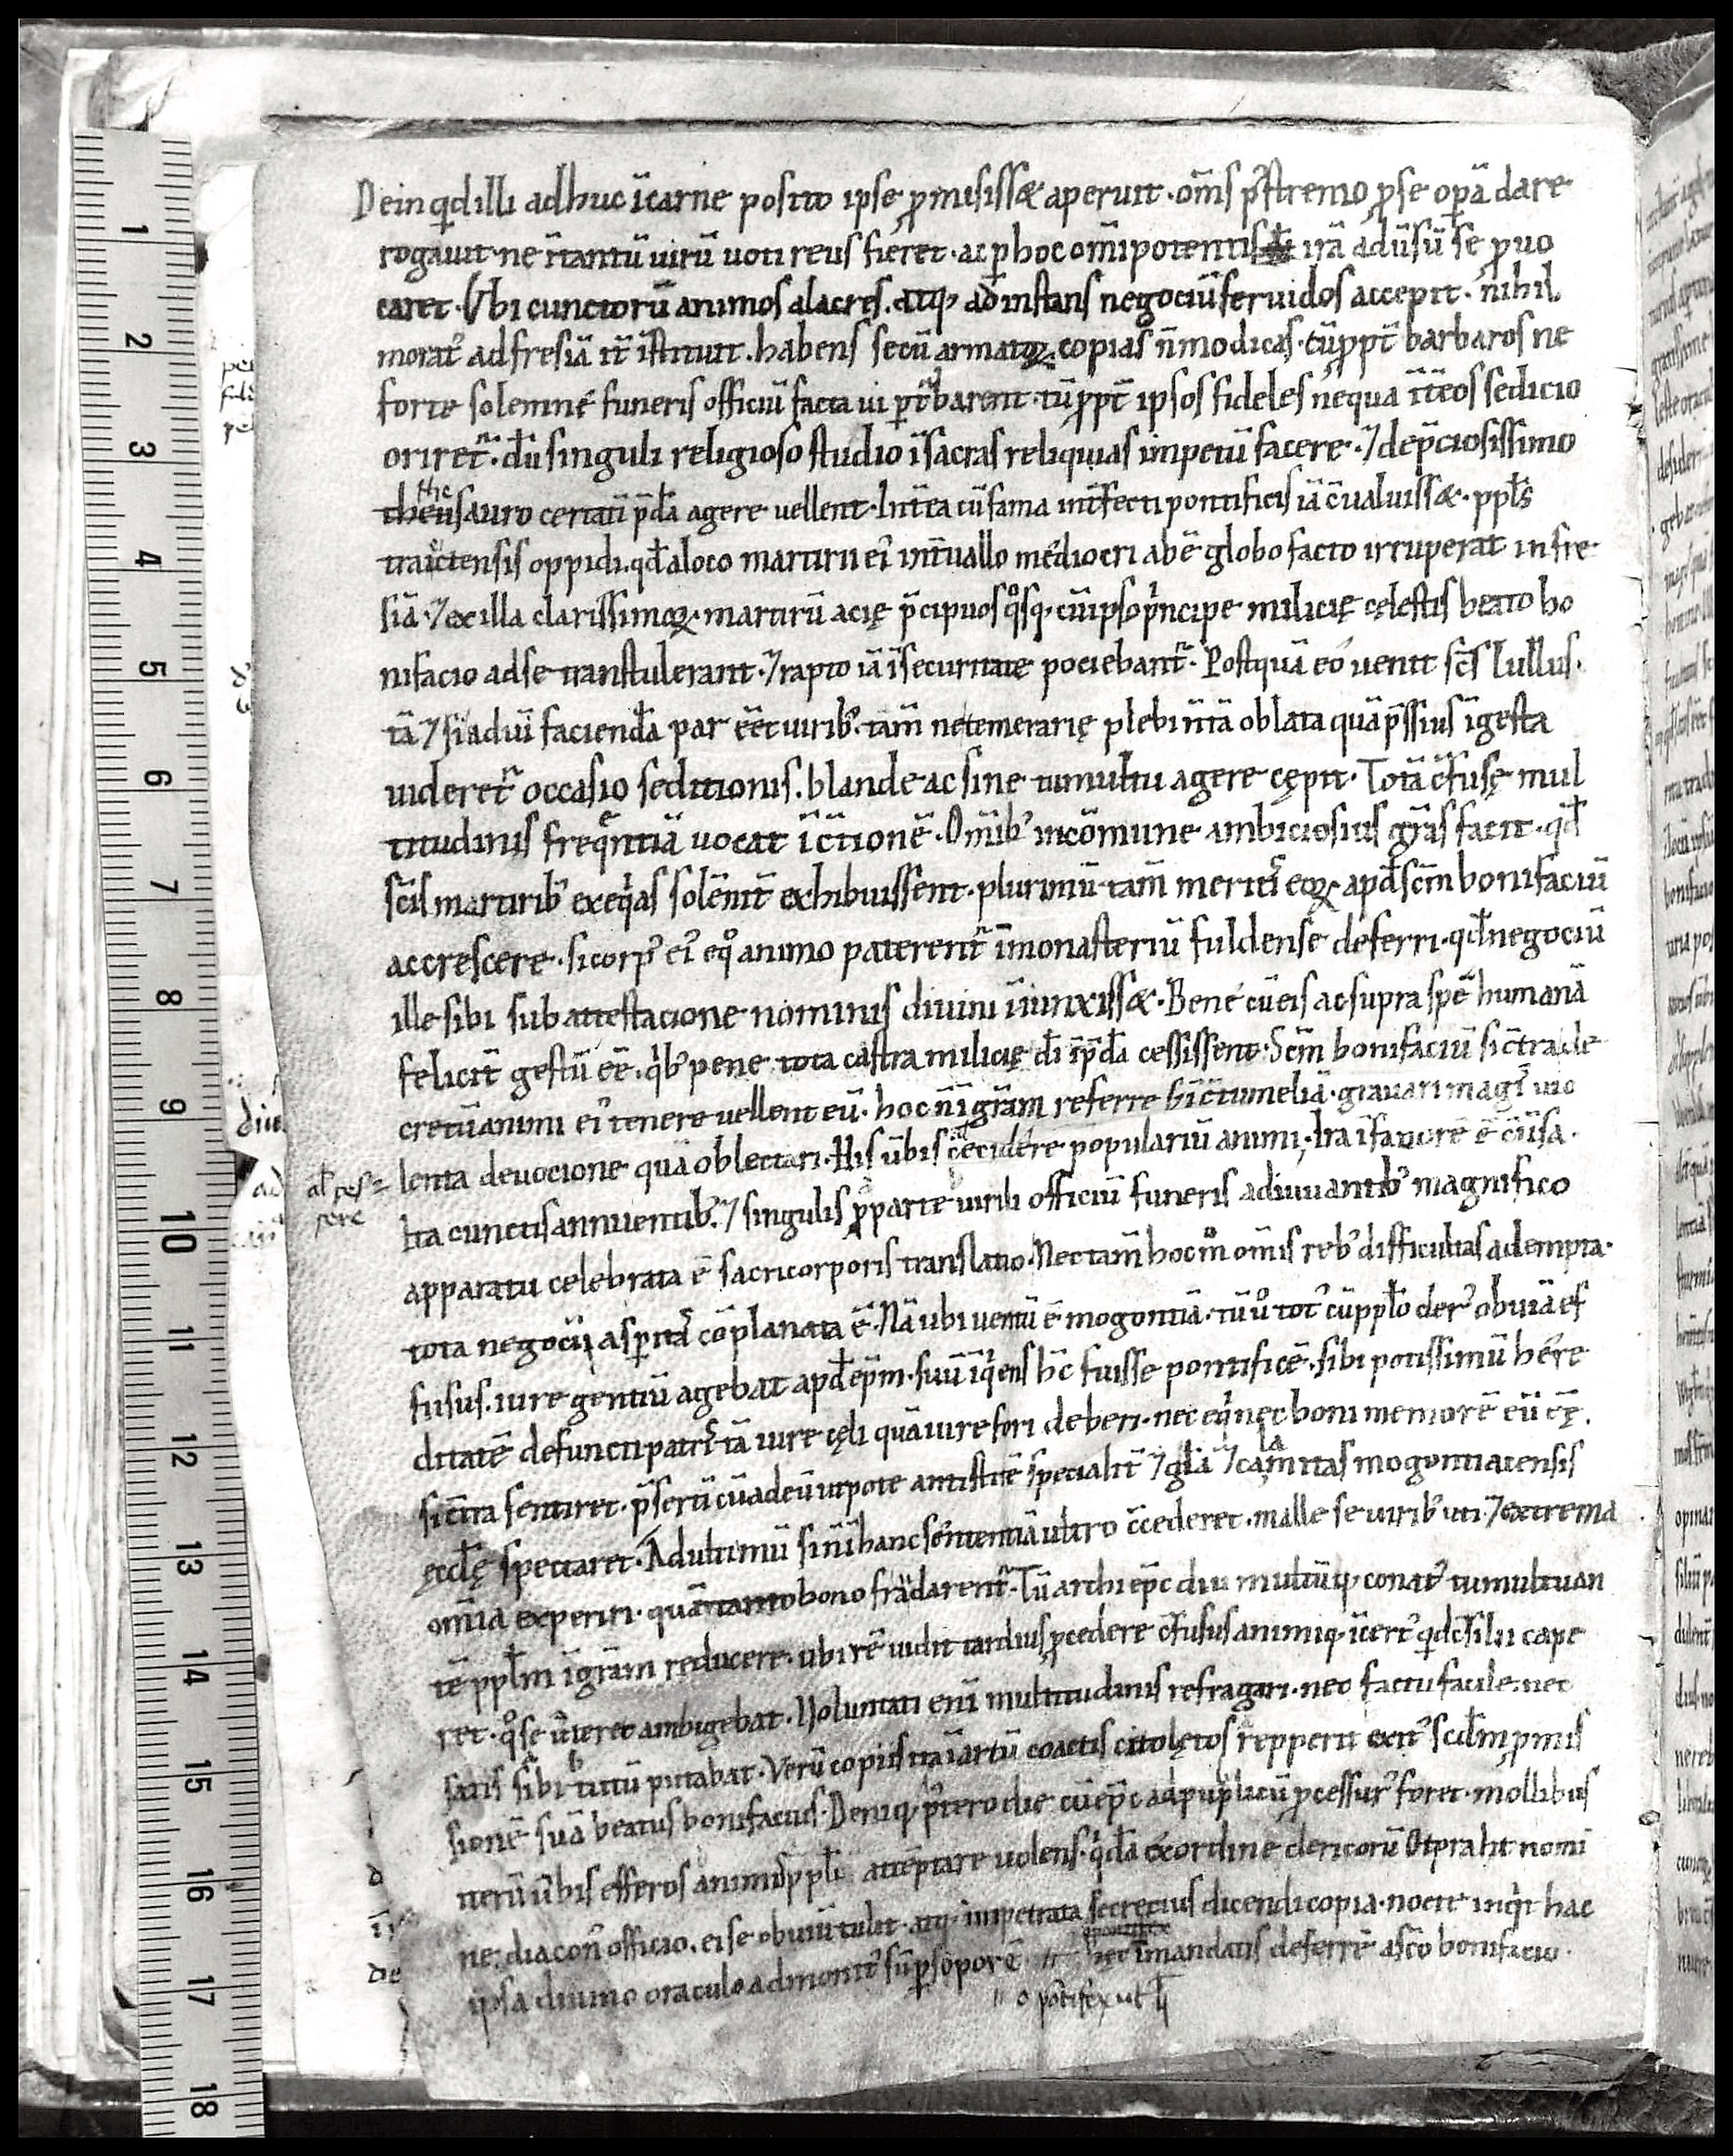 Dein qd illi adhuc ĩcarne posito ipse ꝓmisissæ aperuit · om̃s p̾stremo ꝓse oꝑã dare
rogauit · ne r̃tantũ uirũ uoti reus fieret · ac ꝑ hoc om̃ipotentis d̃i irã adũsũ se ꝓuo
caret · Vbi cunctorũ animos alacres · atq; ad instans negociũ feruidos accepit · nihil
morat᷒ ad fresiã it̃ ĩstituit · habens secũ armatoꝝ copias ñ modicas · tũ ꝓpt̃ barbaros ne
forte solemne funeris officiũ facta ui ꝑt᷒barent · tũ ꝓpt̃ ipsos fideles nequa ĩt̃eos sedicio
oriret᷒ · dũ singuli religioso studio ĩ sacras reliquias impetũ facere · ⁊ dep̃ciosissimo
the
thensauro certati p̃da agere uellent · Int̃ea cũ fama int̃fecti pontificis iã c̃ualuissæ · ppl̃s
traiectensis oppidi · qd̃ a loco martirii ei᷒ int̃uallo mediocri abẽ globo facto irruperat in fre
siã · ⁊ ex illa clarissimoꝝ · martirũ acię p̃cipuos q̊sq; cũ ipso p̾ncipe milicię cęlestis beato bo
nifacio ad se transtulerant · ⁊ rapto iã ĩ securitate pociebant᷒ · Postquã eo uenit sc̃s lullus ·
tã ⁊ si ad uim facienda par ẽet uirib᷒ · tam̃ ne temerarię plebi ñ tã oblata quã p̃ssius ĩgesta
uideret᷒ occasio seditionis · blande ac sine tumultu agere cępit · Totã c̃fusę mul
titudinis freq̃ntiã uocat ĩ c̃tionẽ · Om̃ib᷒ in cõmune ambiciosius gr̃as facit · qd̃
sc̃is martirib᷒ exeq̾as solẽnit̃ exhibuissent · plurimũ tam̃ meritis eoꝝ apd̃ sc̃m bonifaciũ
accrescere · si corp᷒ ei᷒ eq̊ animo paterent᷒ ĩ monasteriũ fuldense deferri · qd̃ negociũ
ille sibi sub attestacione nominis diuini ĩiunxissæ · Bene cũ eis ac supra spẽ humanã
felicit̃ gestũ ẽe · q̾b᷒ pene tota castra milicię d̃i ĩ p̃da cessissent · Sc̃m bonifaciũ si c̃tra de
cretũ animi ei᷒ tenere uellent eũ · hoc ñ ĩ gr̃am referre s; ĩ c̃tumeliã · grauari magis uio
lenta deuocione quã oblectari · His ũbis c̃cidere populariũ animi · Ira ĩ fauorẽ ẽ c̃uersa ·
al̃ ces=
sere
Ita cunctis annuentib᷒ · ⁊ singulis ꝓ parte uirili officiũ funeris adiuuantib᷒ magnifico
apparatu celebrata ẽ sacri corporis translatio · Nec tam̃ hoc m̊ om̃is reb᷒ difficultas adempta ·
tota negocii asꝑitas cõplanata ẽ · Nã ubi uentũ ẽ mogontiã · tũ u̾ tot᷒ cũ pplo̾ cler᷒ obuiã ef
fusus · iure gentiũ agebat apd̃ ep̃m · suũ ĩq̾ens hc̃ fuisse pontificẽ · sibi potissimũ here
ditatẽ defuncti patris tã iure cęli quã iure fori deberi · nec eq̾ nec boni memorẽ eũ ẽe ·
si c̃tra sentiret · p̃sertĩ cũ ad eũ utpote antistitẽ specialit̃ ⁊ gl̃a ⁊ calamitas mogontiacensis
ęccl̃ę spectaret · Ad ultimũ si nĩ hanc sententiã ultro c̃cederet · malle se uirib᷒ uti ⁊ extrema
om̃ia experiri · quã tanto bono fraudarent᷒ · Tũ archiep̃c diu multũq; conat᷒ tumultuan
tẽ ppl̃m ĩ gr̃am reducere · ubi rẽ uidit tardius ꝓcedere c̃fusus animiq; ĩcert᷒ qd c̃silii cape
ret · q̊ se ũteret ambigebat · Uoluntati enĩ multitudinis refragari · nec factu facile · nec
satis sibi tutũ putabat · Verũ copiis ita ĩ artũ coactis cito lętos repperit exit᷒ scd̃m ꝓmis
sionẽ suã beatus bonifacius · Deniq; p̾tero die cũ ep̃c ad puplicũ ꝓcessur᷒ foret · mollibus
uerũ ũbis efferos animos ppl̃i attẽptare uolens · q̾da ex ordine clericorũ Otpraht nomi
ne · diacon᷒ officio · ei se obuiũ tulit · atq; impetrata secrecius dicendi copia · nocte inq̾t hac
pontifex
ipsa diuino oraculo admonit᷒ sũ ꝑ soporẽ // hec ĩ mandatis deferre a sc̃o bonifacio ·
// o põtifex ut